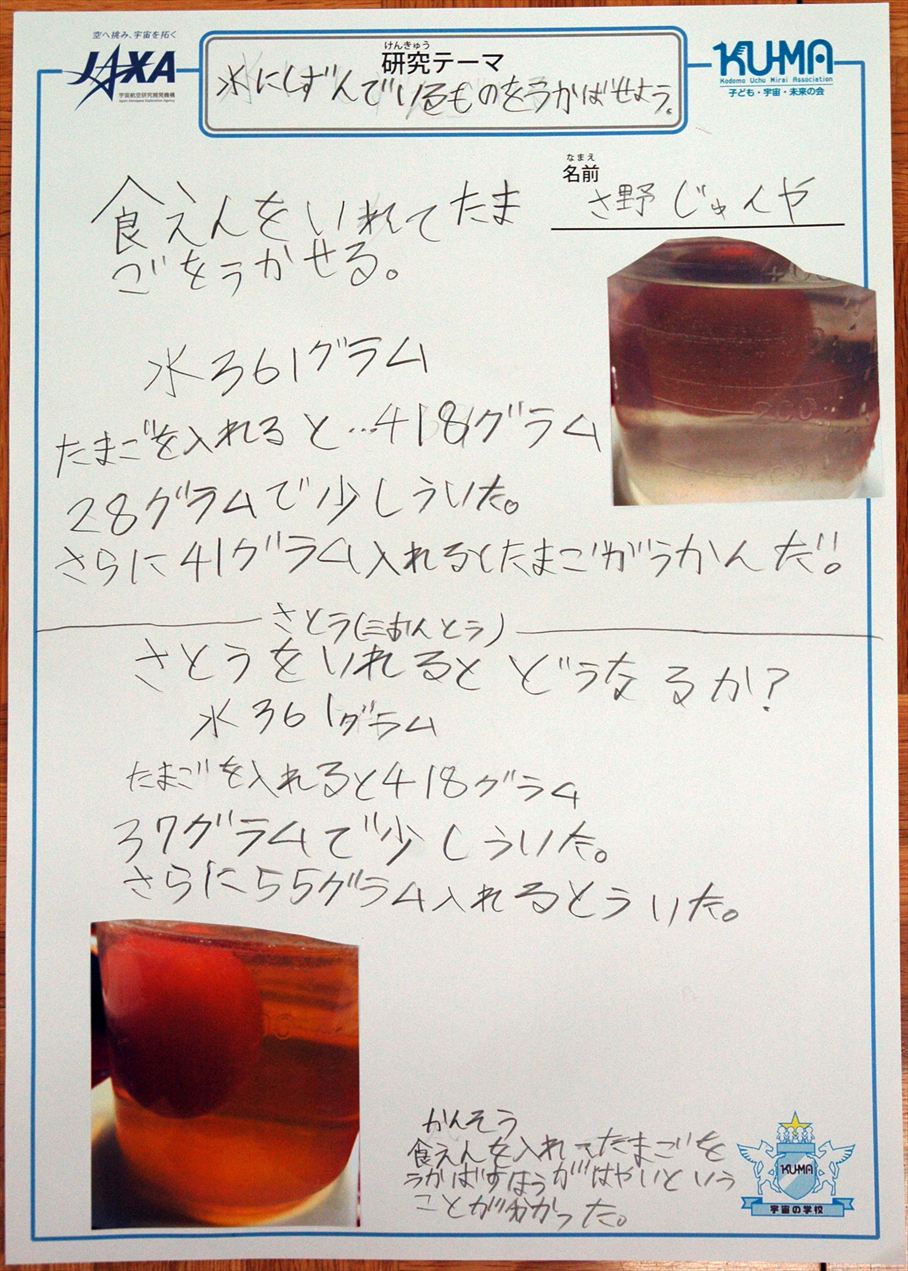 空へ挑み、宇宙を拓く
JAXA
宇宙航空研究開発機構
Japan Aerospace Exploration Agency
けんきゅう
研究テーマ
水にしずんでいるものをうかばせよう。
KU-MA
Kodomo Uchu Mirai Association
子ども・宇宙・未来の会
なまえ
名前
さ野じゅんや
食えんをいれてたま
ごをうかせる。
400
200
水361グラム
たまごを入れると…418グラム
28グラムで少しういた。
さらに41グラム入れるとたまごがうかんだ!!
さとう(三おんとう)
さとうをいれるとどうなるか?
水361グラム
たまごを入れると418グラム
37グラムで少しういた。
さらに55グラム入れるとういた。
かんそう
食えんを入れてたまごを
うかばすほうがはやいという
ことが分かった。
KU-MA
宇宙の学校